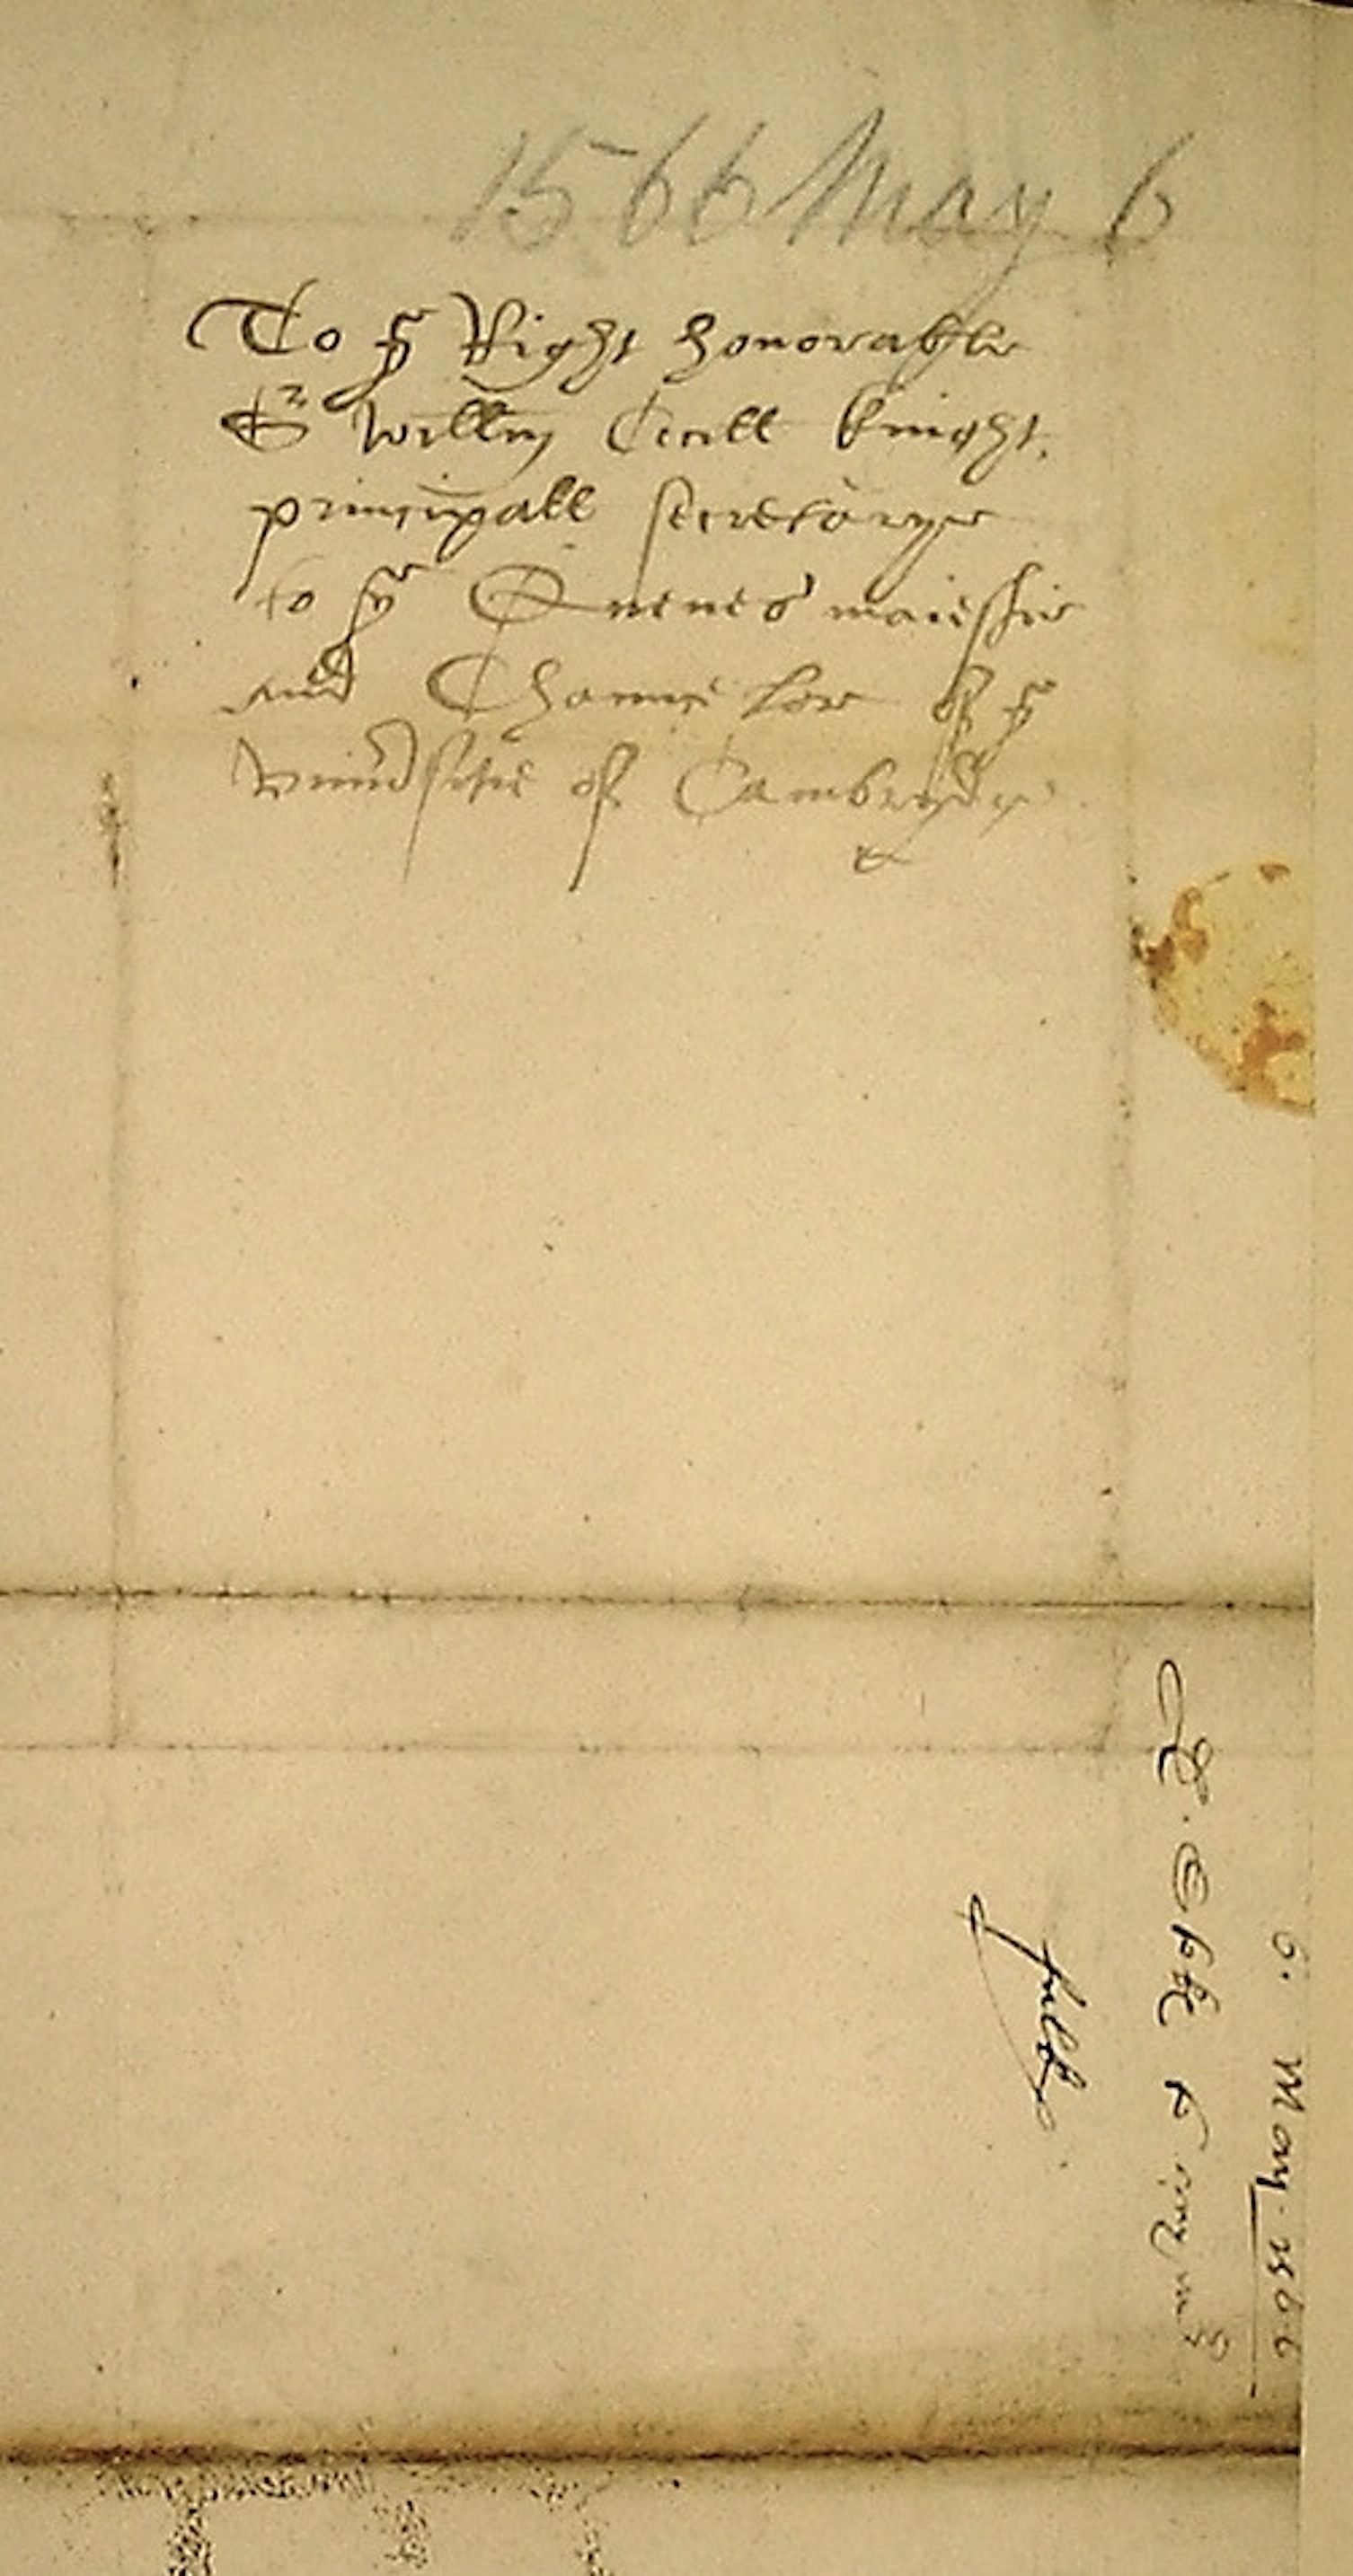 1566 May 6
To yͤ Right honorable
Sʳ Willm Cecill Knight,
principall secretarye
to yͤ Quenes maiestie
and Chauncelor of yͤ
vniuersitie of Cambrydg
&
6. May. 1566
fulk